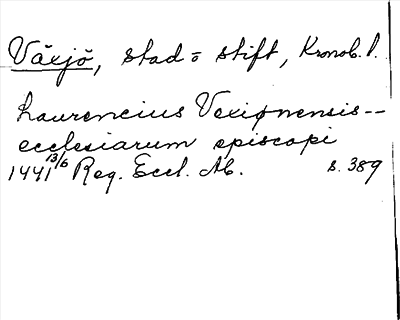 Växjö, stad o stift, Kronob. l.
Laurencius Vexionensis --
ecclesiarum episcopi
1441 13/6 Reg. Eccl. Ab. s. 389